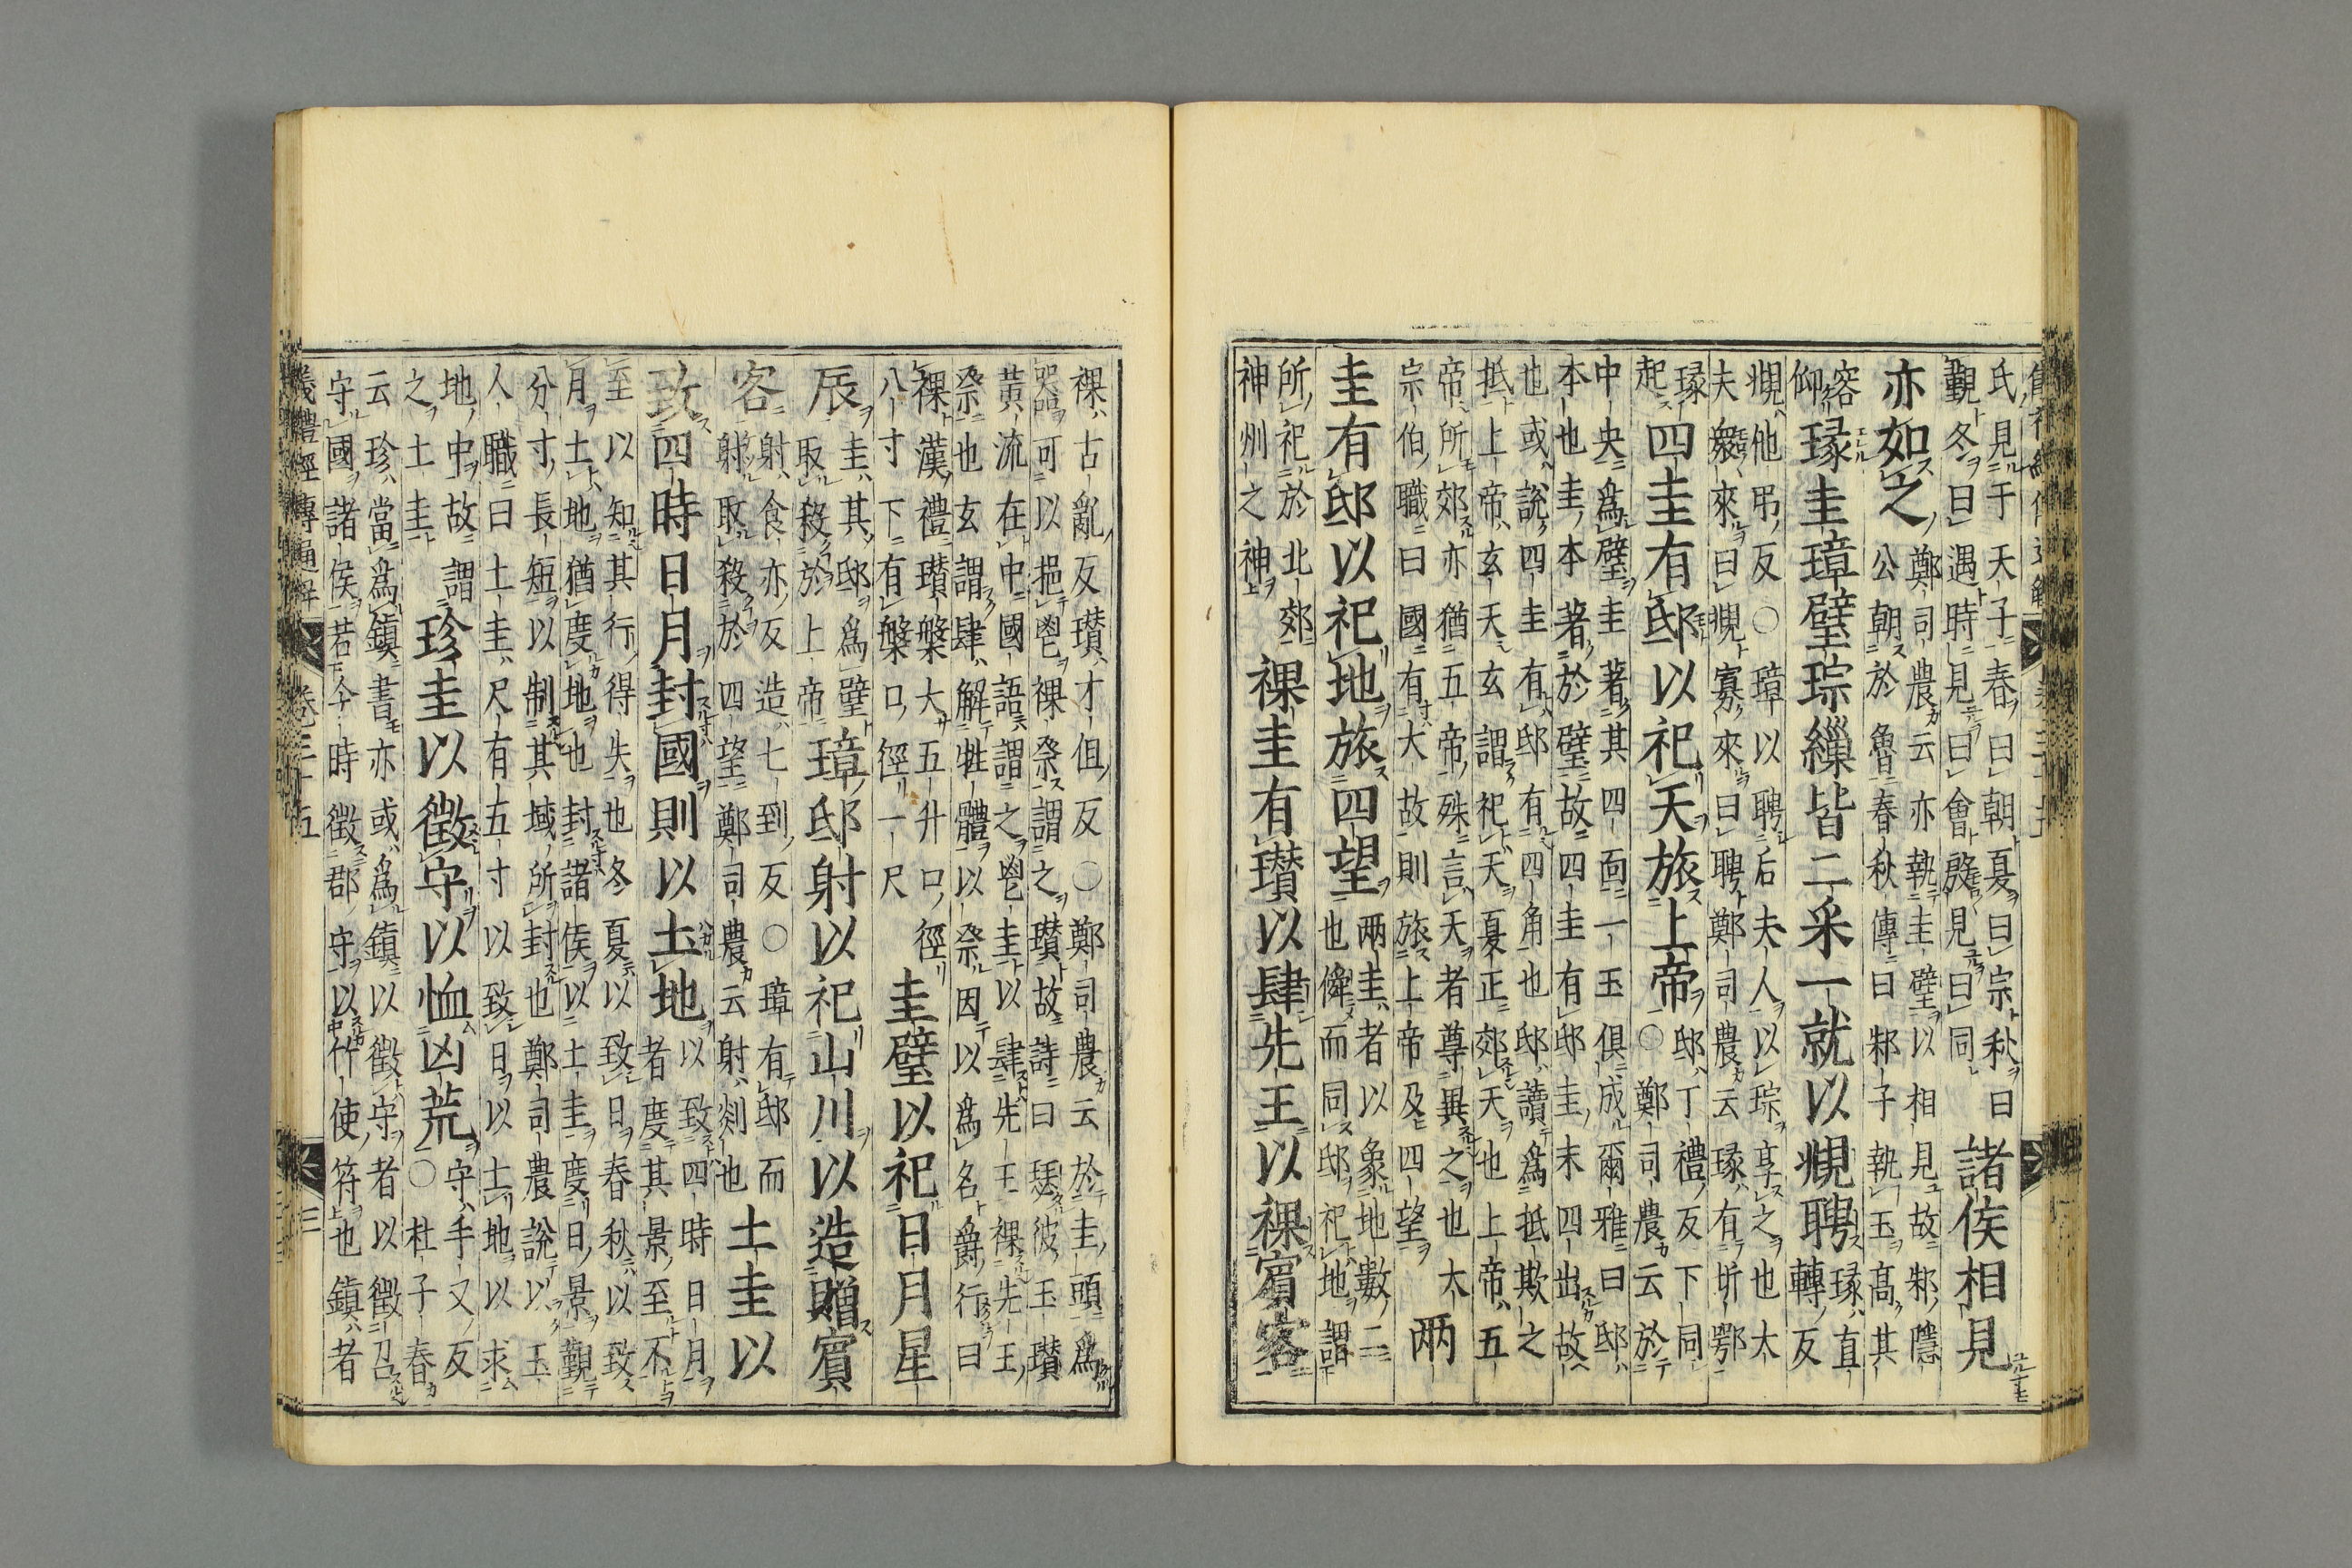 氏見于天子春曰朝夏曰宗秋曰
覲冬曰遇時見曰會殷見曰同
諸侯相見
亦如之
鄭司農云亦執圭璧以相見故邾隱
公朝於魯春秋傳曰邾子執玉高其
容
仰
瑑圭璋璧琮繅皆二采一就以覜聘
瑑直
轉反
覜他弔反○璋以聘后夫人以琮享之也大
夫衆來曰覜寡來曰聘鄭司農云瑑有圻鄂
瑑
起
四圭有邸以祀天旅上帝
邸丁禮反下同
○鄭司農云於
中央爲璧圭著其四面一玉俱成爾雅曰邸
本也圭本著於璧故四圭有邸圭末四出故
也或說四圭有邸有四角也邸讀爲抵欺之
抵上帝玄天玄謂祀天夏正郊天也上帝五
帝所郊亦猶五帝殊言天者尊異之也大
宗伯職曰國有大故則旅上帝及四望
两
圭有邸以祀地旅四望
两圭者以象地數二
也僢而同邸祀地謂
所祀於北郊
神州之神
祼圭有瓚以肆先王以祼賓客
祼古亂反瓚才但反○鄭司農云於圭頭爲
器可以挹鬯祼祭謂之瓚故詩曰瑟彼玉瓚
黃流在中國語謂之鬯圭以肆先王祼先王
祭也玄謂肆解牲體以祭因以爲名爵行曰
祼漢禮瓚槃大五升口徑
八寸下有槃口徑一尺
圭璧以祀日月星
辰
圭其邸爲璧
取殺於上帝
璋邸射以祀山川以造贈賓
客
射食亦反造七到反○璋有邸而
射取殺於四望鄭司農云射剡也
土圭以
致四時日月封國則以土地
以致四時日月
者度其景至不
至以知其行得失也冬夏以致日春秋以致
月土地猶度地也封諸侯以土圭度日景觀
分寸長短以制其域所封也鄭司農說以玉
人職曰土圭尺有五寸以致日以土地以求
地中故謂
之土圭
珍圭以徵守以恤凶荒
守手又反
○杜子春
云珍當爲鎮書亦或爲鎮以徵守者以徵召
守國諸侯若今時徵郡守以竹使符也鎮者
儀禮經傳通解 卷三十五 三